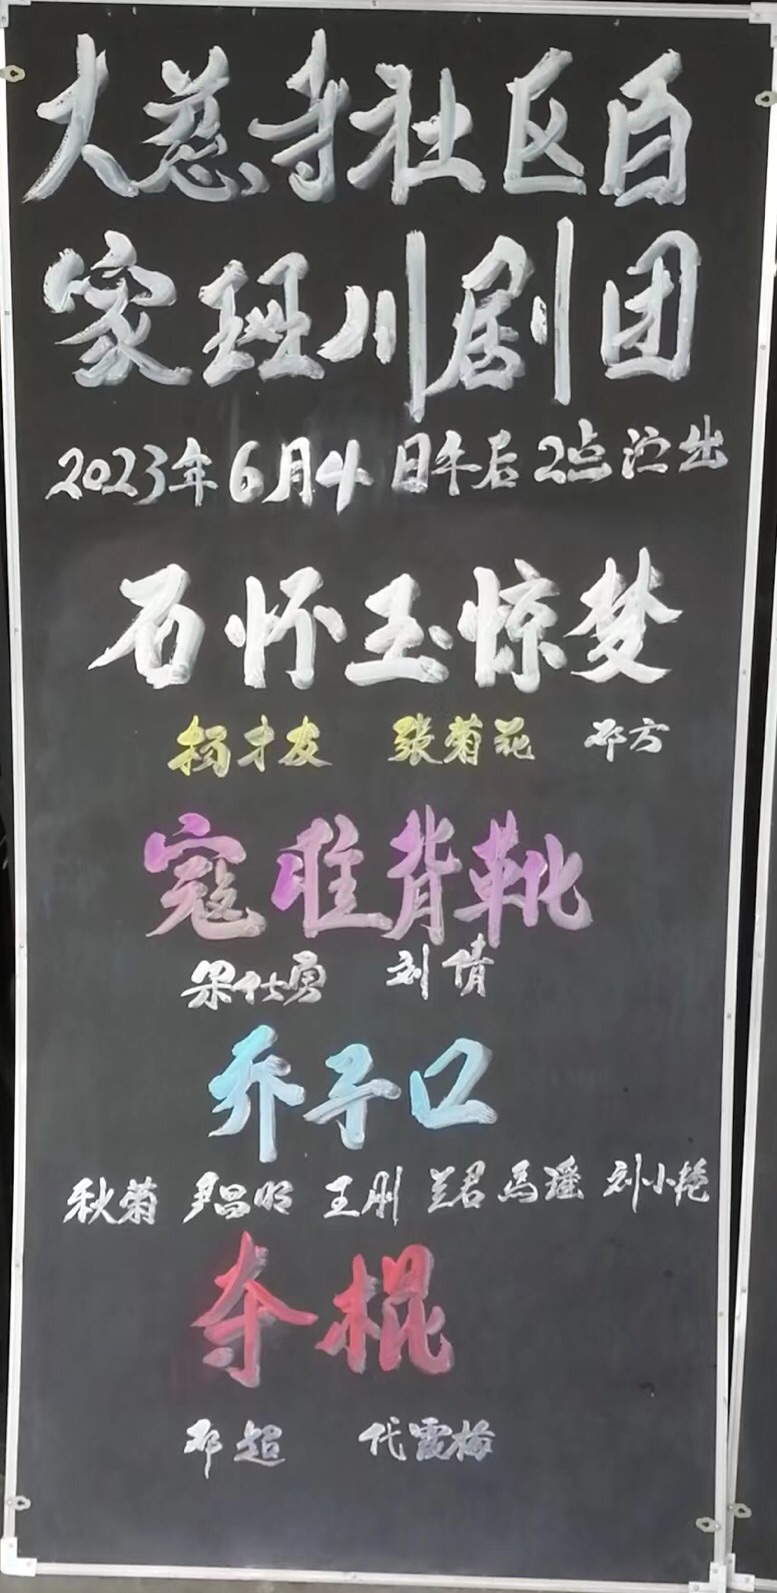 大慈寺社区百
家班川剧团
2023年6月4日午后2点演出
石怀玉惊梦
杨才友 张菊花 邓方
寇准背靴
梁仕勇 刘倩
乔子口
秋菊 尹昌明 王刚 兰君 马瑶 刘小艳
夺棍
邓超 代霞梅